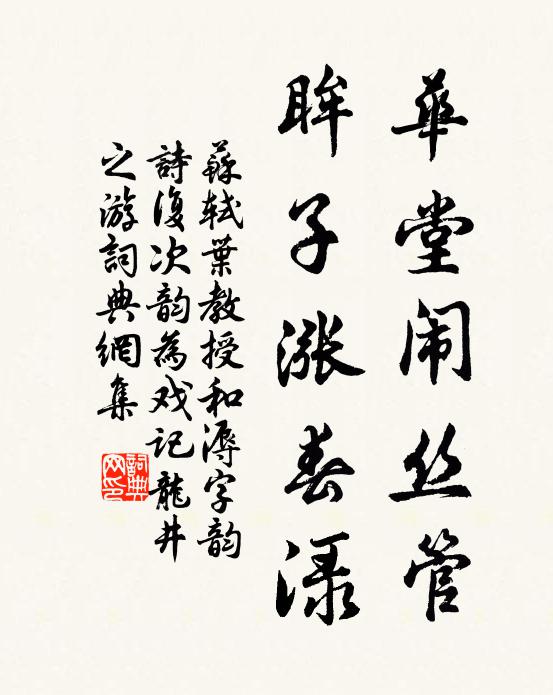 華堂闹丝管
眸子漲春渌
蘇軾葉教授和溽字韵
詩復次韵為戏記龍井
之游詞典網集
詞典网印